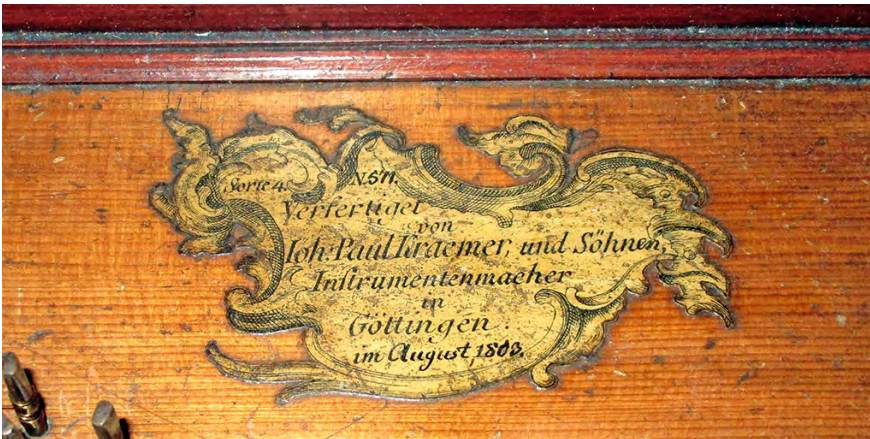 Sorte 4. N.511.
Verfertiget
von
Ioh: Paul Kraemer, und Söhnen,
Instrumentenmacher
in
Göttingen.
im August, 1803.